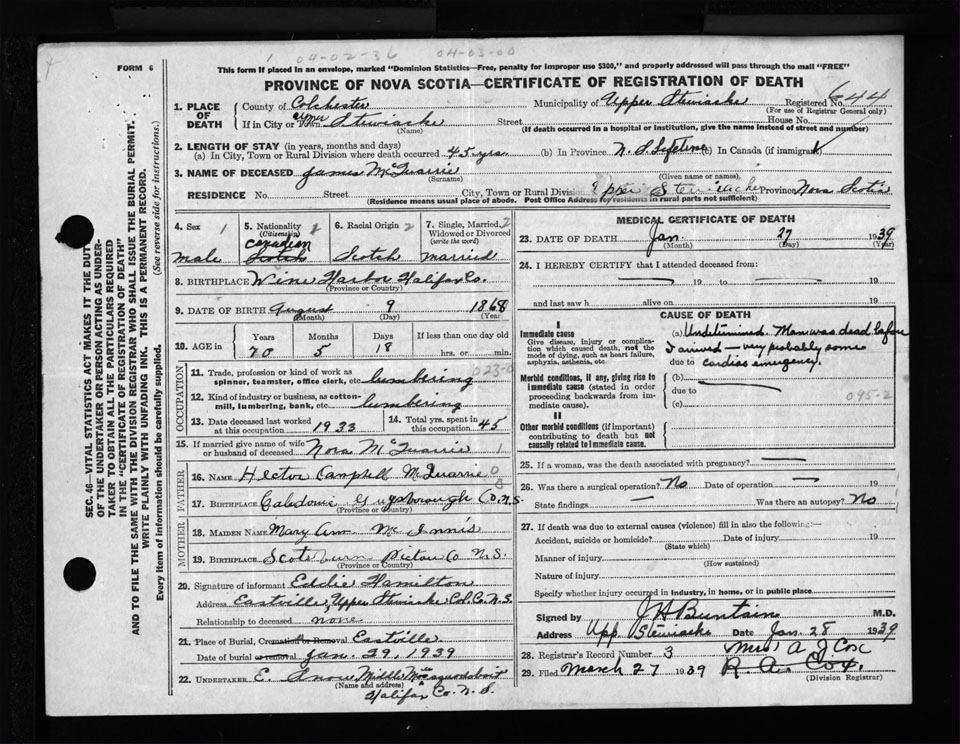 1 04-02-36 04-03-00
FORM 6
This form if placed in an envelope, marked "Dominion Statistics—Free, penalty for improper use $300," and properly addressed will pass through the mail "FREE"
PROVINCE OF NOVA SCOTIA—CERTIFICATE OF REGISTRATION OF DEATH
644
1. PLACE OF DEATH
County of Colchester Municipality of Upper Stewiacke Registered No.
(For use of Registrar General only)
If in City or Town Upper Stewiacke Street House No.
(Name) (If death occurred in a hospital or institution, give the name instead of street and number)
2. LENGTH OF STAY (in years, months and days)
(a) In City, Town or Rural Division where death occurred 45 yrs. (b) In Province N. S. Lifetime (c) In Canada (if immigrant)
3. NAME OF DECEASED James McQuarrie
(Surname) (Given name or names)
RESIDENCE No. Street City, Town or Rural Division Upper Stewiacke Province Nova Scotia
(Residence means usual place of abode. Post Office Address for residents in rural parts not sufficient)
4. Sex 1
male
5. Nationality
(Citizenship)
Canadian
Scotch
6. Racial Origin 2
Scotch
7. Single, Married, 2
Widowed or Divorced
(write the word)
married
8. BIRTHPLACE Wine Harbor Halifax Co.
(Province or Country)
9. DATE OF BIRTH August 9 1868
(Month) (Day) (Year)
10. AGE in
Years Months Days If less than one day old
70 5 18 hrs. or min.
OCCUPATION
11. Trade, profession or kind of work as
spinner, teamster, office clerk, etc. lumbering
12. Kind of industry or business, as cotton-
mill, lumbering, bank, etc. lumbering
13. Date deceased last worked
at this occupation 1933
14. Total yrs. spent in
this occupation 45
15. If married give name of wife
or husband of deceased Nora McQuarrie 1
FATHER
16. NAME Hector Campbell McQuarrie
17. BIRTHPLACE Caledonia Guysborough Co. N.S.
(Province or Country)
MOTHER
18. MAIDEN NAME Mary Ann McInnis
19. BIRTHPLACE Scotsburn Pictou Co N.S.
(Province or Country)
20. Signature of informant Eddie Hamilton
Address Eastville, Upper Stewiacke Col. Co. N.S.
Relationship to deceased none
21. Place of Burial, Cremation or Removal Eastville
Date of burial or removal Jan. 29, 1939
22. UNDERTAKER E. Snow, Middle Musquodoboit
(Name and address) Halifax Co. N.S.
MEDICAL CERTIFICATE OF DEATH
23. DATE OF DEATH Jan. 27 1939
(Month) (Day) (Year)
24. I HEREBY CERTIFY that I attended deceased from:
19 to 19
and last saw h alive on 19
CAUSE OF DEATH
I
Immediate cause
Give disease, injury or compli-
cation which caused death, not the
mode of dying, such as heart failure,
asphyxia, asthenia, etc.
(a) Undetermined. Man was dead before
I arrived — very probably some
due to cardiac emergency.
Morbid conditions, if any, giving rise to
immediate cause (stated in order
proceeding backwards from im-
mediate cause).
(b)
due to
(c)
095-2
II
Other morbid conditions (if important)
contributing to death but not
causally related to immediate cause.
25. If a woman, was the death associated with pregnancy?
26. Was there a surgical operation? No Date of operation 19
State findings Was there an autopsy? No
27. If death was due to external causes (violence) fill in also the following:—
Accident, suicide or homicide? Date of injury 19
(State which)
Manner of injury
(How sustained)
Nature of injury
Specify whether injury occurred in industry, in home, or in public place
Signed by J H Buntain M.D.
Address Upp Stewiacke Date Jan. 28 1939
28. Registrar's Record Number 3 Mrs A J Cox
29. Filed March 27 1939 R. A. Cox.
(Division Registrar)
SEC. 46—VITAL STATISTICS ACT MAKES IT THE DUTY
OF THE UNDERTAKER OR PERSON ACTING AS UNDER-
TAKER TO OBTAIN ALL THE PARTICULARS REQUIRED
IN THE "CERTIFICATE OF REGISTRATION OF DEATH"
AND TO FILE THE SAME WITH THE DIVISION REGISTRAR WHO SHALL ISSUE THE BURIAL PERMIT.
WRITE PLAINLY WITH UNFADING INK. THIS IS A PERMANENT RECORD.
Every item of information should be carefully supplied. (See reverse side for instructions.)